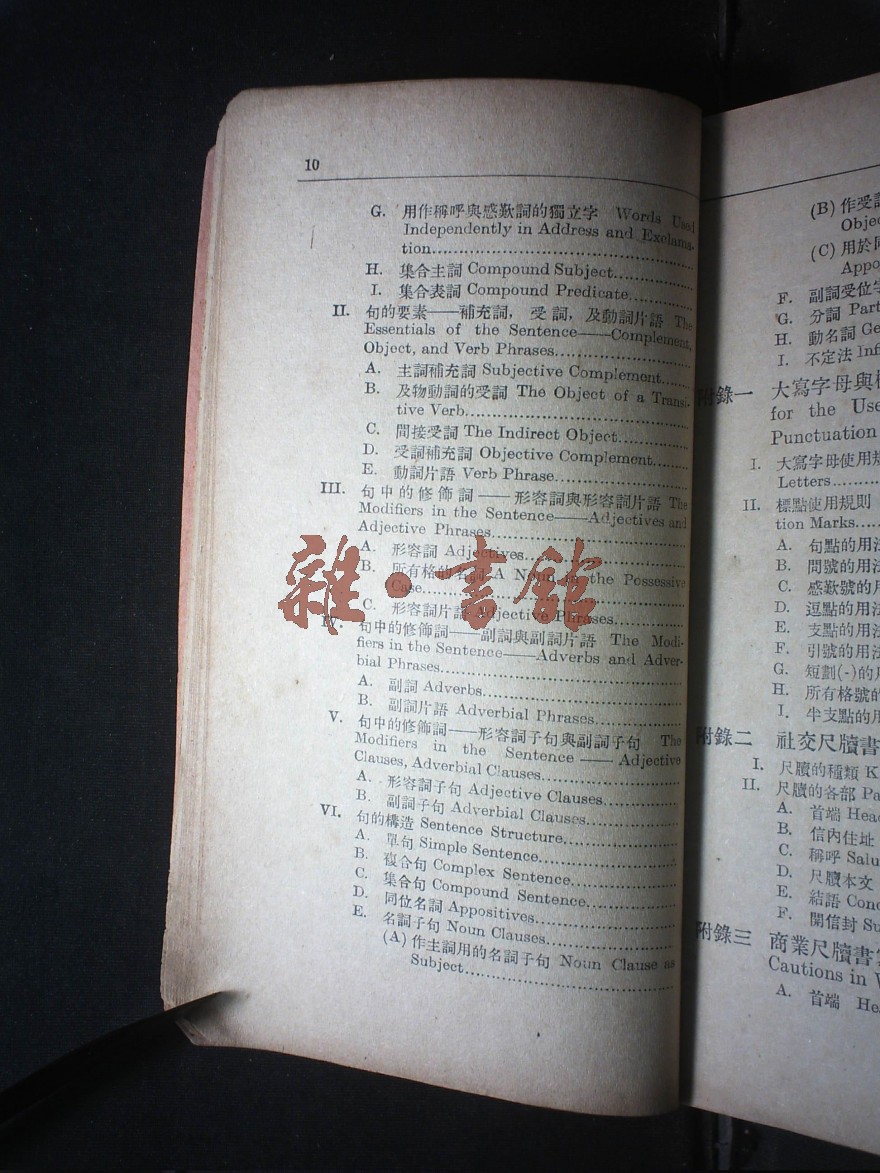 10
G. 用作稱呼與感歎詞的獨立字 Words Used
Independently in Address and Exclama-
tion
H. 集合主詞 Compound Subject
I. 集合表詞 Compound Predicate
II. 句的要素——補充詞,受詞,及動詞片語 The
Essentials of the Sentence——Complement,
Object, and Verb Phrases
A. 主詞補充詞 Subjective Complement
B. 及物動詞的受詞 The Object of a Transi-
tive Verb
C. 間接受詞 The Indirect Object
D. 受詞補充詞 Objective Complement
E. 動詞片語 Verb Phrase
III. 句中的修飾詞——形容詞與形容詞片語 The
Modifiers in the Sentence——Adjectives and
Adjective Phrases
A. 形容詞 Adjectives
B. 所有格的名詞 A Noun in the Possessive
Case
C. 形容詞片語 Adjective Phrases
IV. 句中的修飾詞——副詞與副詞片語 The Modi-
fiers in the Sentence——Adverbs and Adver-
bial Phrases
A. 副詞 Adverbs
B. 副詞片語 Adverbial Phrases
V. 句中的修飾詞——形容詞子句與副詞子句 The
Modifiers in the Sentence——Adjective
Clauses, Adverbial Clauses
A. 形容詞子句 Adjective Clauses
B. 副詞子句 Adverbial Clauses
VI. 句的構造 Sentence Structure
A. 單句 Simple Sentence
B. 複合句 Complex Sentence
C. 集合句 Compound Sentence
D. 同位名詞 Appositives
E. 名詞子句 Noun Clauses
(A) 作主詞用的名詞子句 Noun Clause as
Subject
雜·書館
(B) 作受
Obje
(C) 用於
Appo
F. 副詞受位
G. 分詞 Part
H. 動名詞 Ge
I. 不定法 Inf
附錄一 大寫字母與
for the Use
Punctuation
I. 大寫字母使用規
Letters
II. 標點使用規則
tion Marks
A. 句點的用法
B. 問號的用法
C. 感歎號的用
D. 逗點的用法
E. 支點的用法
F. 引號的用法
G. 短劃(-)的
H. 所有格號的
I. 半支點的用
附錄二 社交尺牘書
I. 尺牘的種類 K
II. 尺牘的各部 Pa
A. 首端 Head
B. 信內住址
C. 稱呼 Salu
D. 尺牘本文
E. 結語 Conc
F. 開信封 Su
附錄三 商業尺牘書
Cautions in
A. 首端 He